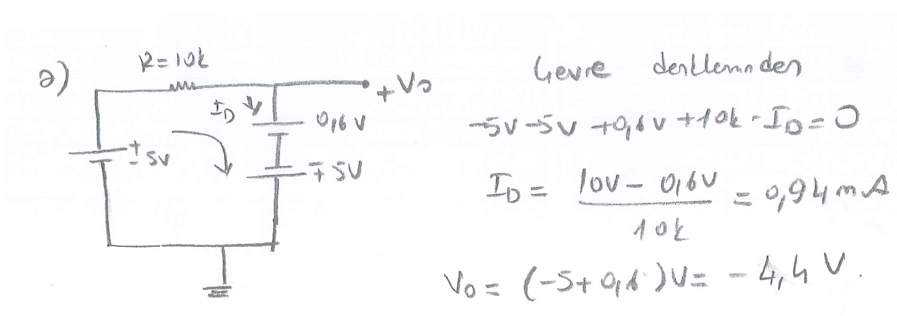 a)
R=10k
+Vo
ID
0,6 V
± 5V
∓ 5V
Çevre denkleminden
-5V-5V+0,6V+10k·ID=0
ID = 10V - 0,6V / 10k = 0,94mA
Vo = (-5+0,6)V = -4,4 V.